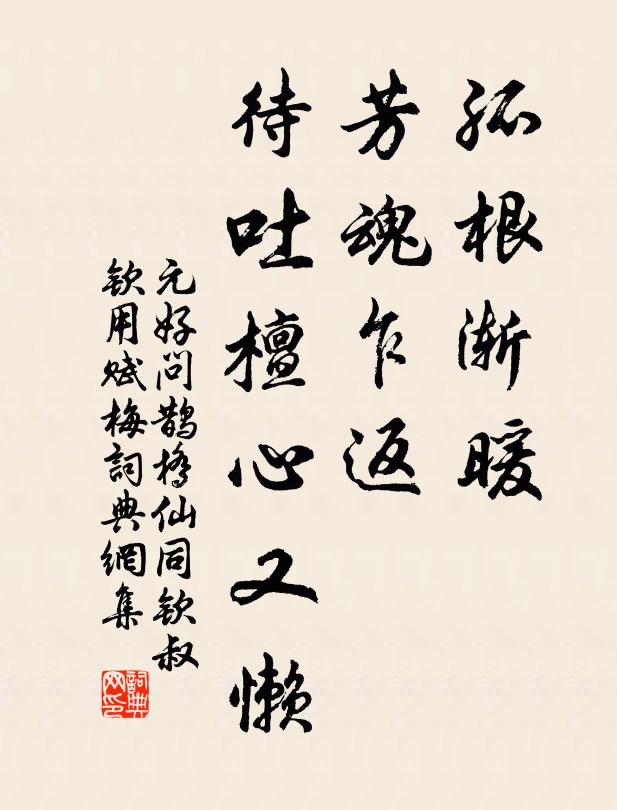 孤根渐暖
芳魂乍返
待吐檀心又懒
元好问鹊桥仙同钦叔
钦用赋梅詞典網集
詞典
网印